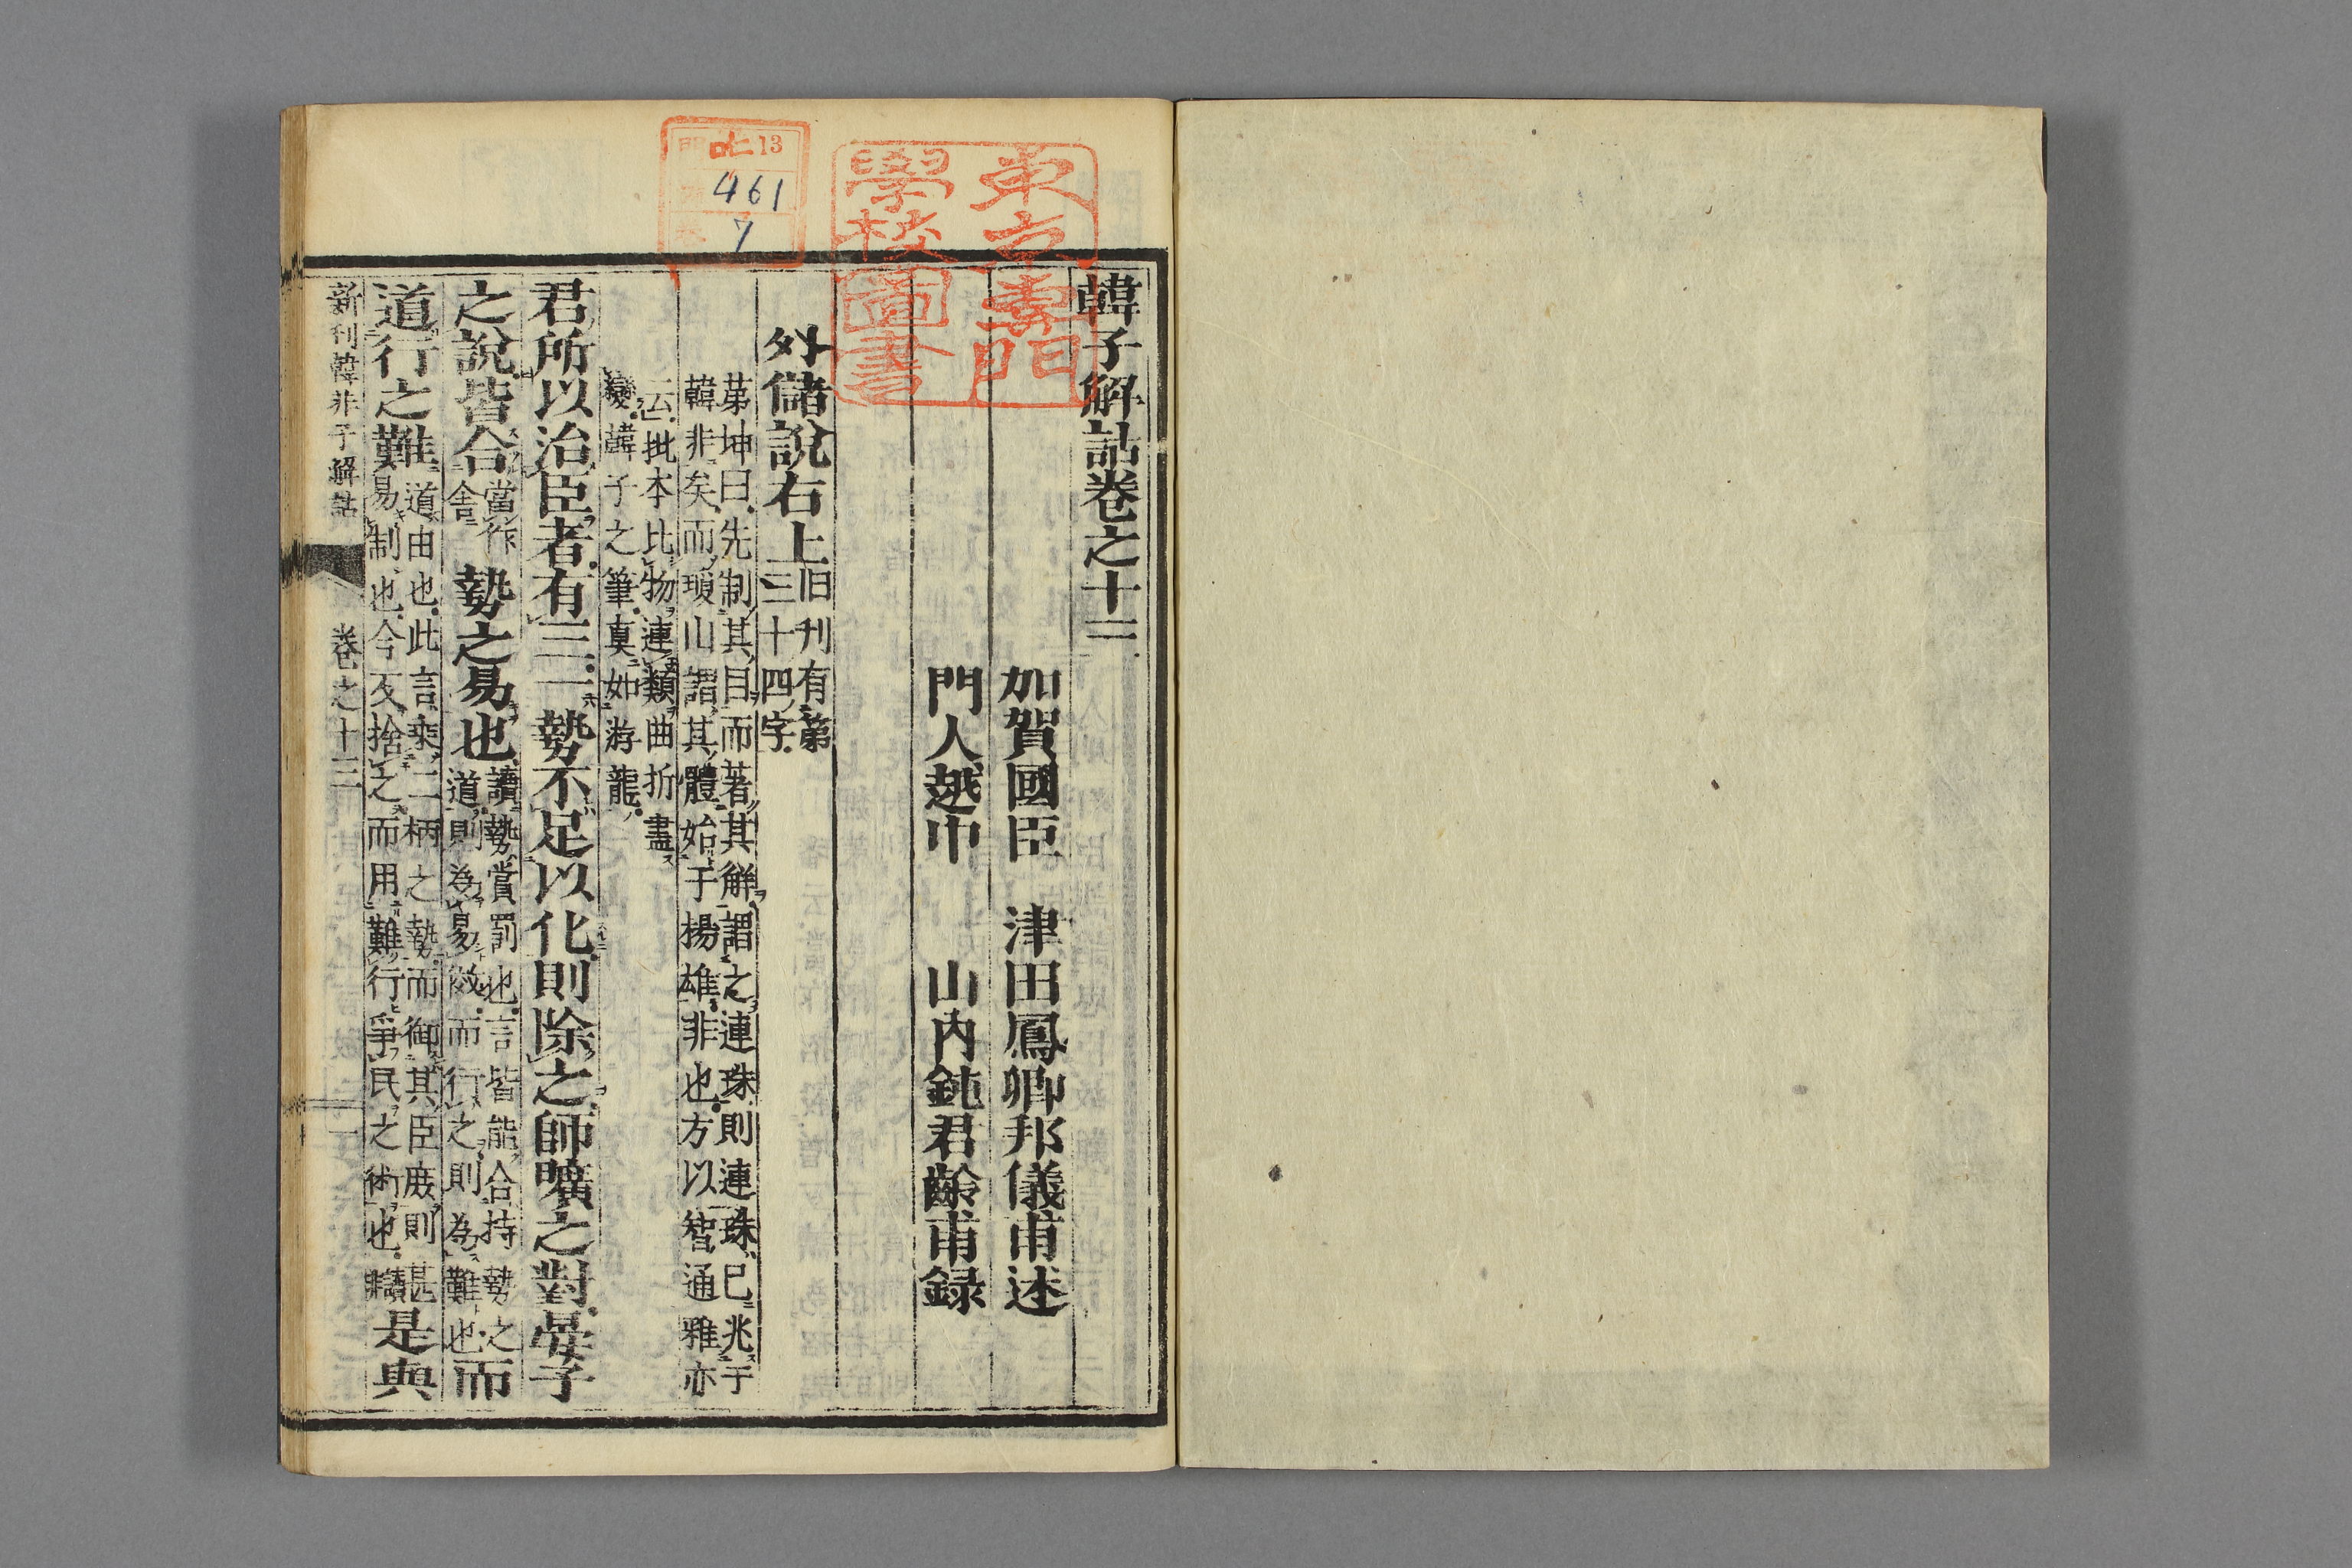 東京專門
學校圖書
門 13
461
卷 7
韓子解詁卷之十三
加賀國臣 津田鳳卿邦儀甫述
門人越中 山内鈍君齢甫録
外儲說右上 旧刊有第三十四字
茅坤曰先制其目而著其解謂之連珠則連珠已兆于
韓非矣而瓊山謂其體始于揚雄非也方以智通雅亦
云批本比物連類曲折盡
變韓子之筆真如游龍
君所以治臣者有三一勢不足以化則除之師曠之對晏子
之說皆合 當作舍 勢之易也 讀勢賞罰也言皆能合持勢之道則為易傚而行之則為難也 而
道行之難 道由也此言乘二柄之勢而御其臣庶則甚易制也今反捨之而用難行爭民之術也 是與
新刊韓非子解詁 卷之十三 一